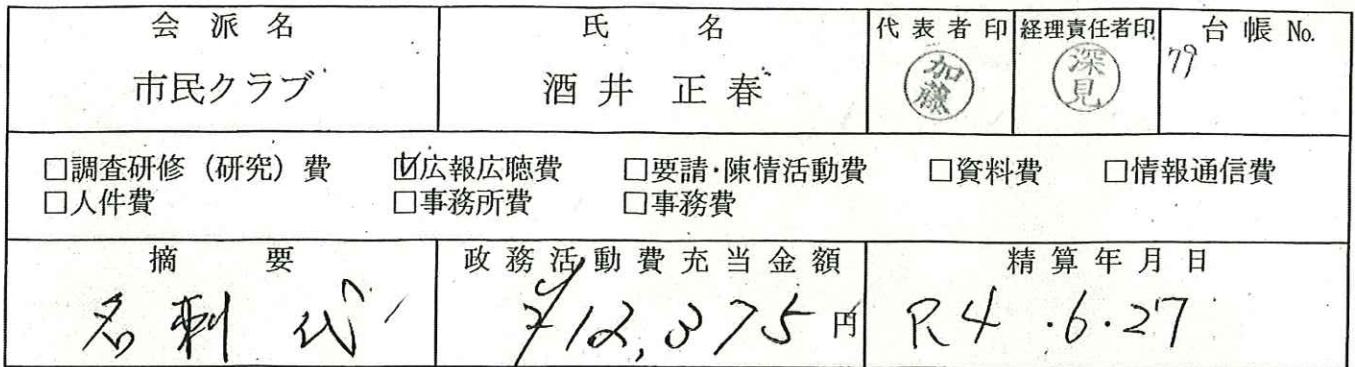 会派名 氏名 代表者印 経理責任者印 台帳No.
市民クラブ 酒井正春 加藤 深見 79
□調査研修（研究）費 ☑広報広聴費 □要請・陳情活動費 □資料費 □情報通信費
□人件費 □事務所費 □事務費
摘要 政務活動費充当金額 精算年月日
名刺代 ¥12,375円 R4.6.27